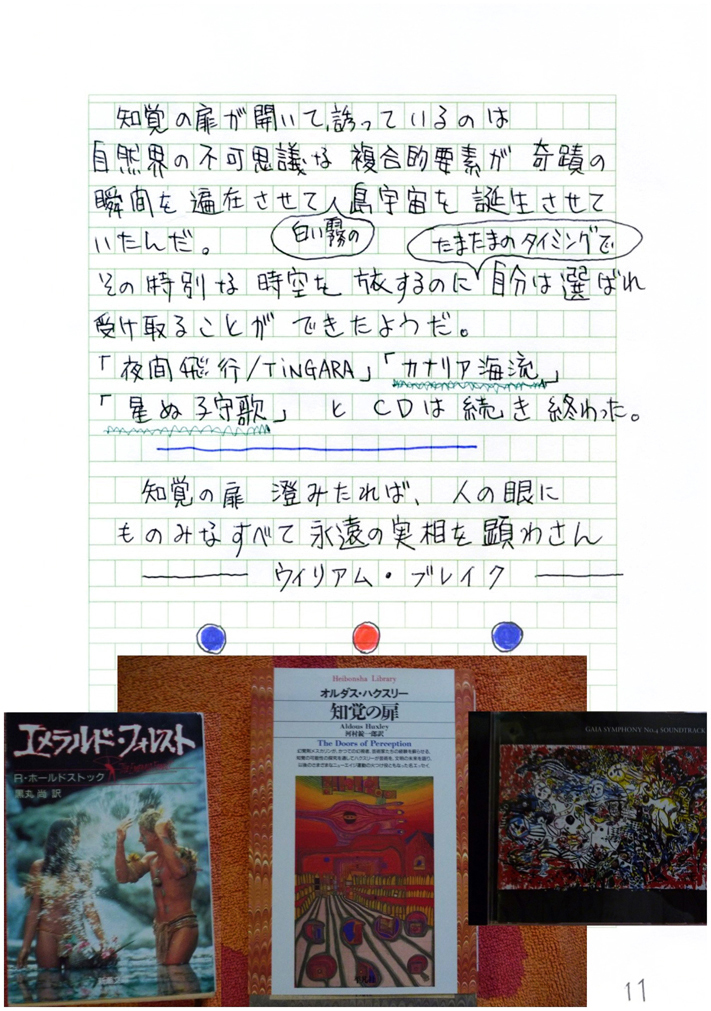 知覚の扉が開いて、誘っているのは
自然界の不可思議な 複合的要素が 奇蹟の
瞬間を 遍在させて島宇宙を 誕生させて
白い霧の
いたんだ。
たまたまのタイミングで
その特別な 時空を 旅するのに 自分は選ばれ
受け取ることが できたようだ。
「夜間飛行/TiNGARA」「カナリア海流」
「星ぬ子守歌」 と CDは 続き 終わった。
知覚の扉 澄みたれば、人の眼に
ものみなすべて 永遠の実相を 顕わさん
ウィリアム・ブレイク
エメラルド・フォレスト
R・ホールドストック
黒丸 尚 訳
Heibonsha Library
オルダス・ハクスリー
知覚の扉
Aldous Huxley
河村錠一郎訳
The Doors of Perception
平凡社
GAIA SYMPHONY No.4 SOUNDTRACK
11